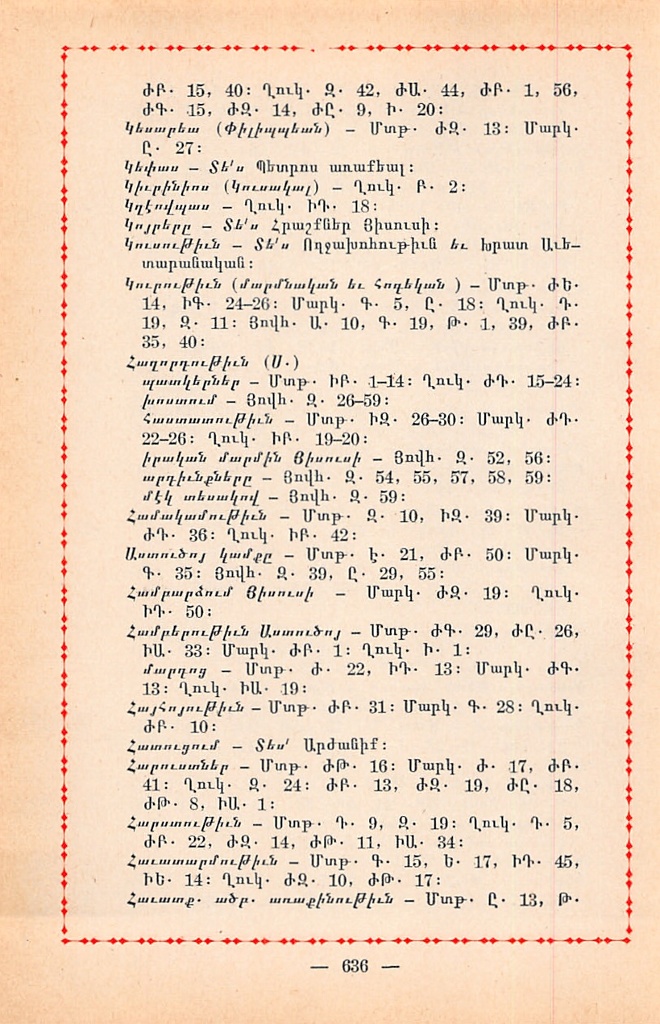 ԺԲ․ 15, 40։ Ղուկ․ Զ․ 42, ԺԱ․ 44, ԺԲ․ 1, 56,
ԺԳ․ 15, ԺԶ․ 14, ԺԸ․ 9, Ի․ 20։
Կեսարեա (Փիլիպպեան) – Մտթ․ ԺԶ․ 13։ Մարկ․
Ը․ 27։
Կեփաս – Տե՛ս Պետրոս առաքեալ։
Կիւրինիոս (Կուսակալ) – Ղուկ․ Բ․ 2։
Կղէովպաս – Ղուկ․ ԻԴ․ 18։
Կոյրերը – Տե՛ս Հրաշքներ Յիսուսի։
Կուսութիւն – Տե՛ս Ողջախոհութիւն եւ Խրատ Աւե-
տարանական։
Կուրութիւն (մարմնական եւ Հոգեկան ) – Մտթ․ ԺԵ․
14, ԻԳ․ 24–26։ Մարկ․ Գ․ 5, Ը․ 18։ Ղուկ․ Դ․
19, Զ․ 11։ Յովհ․ Ա․ 10, Գ․ 19, Թ․ 1, 39, ԺԲ․
35, 40։
Հաղորդութիւն (Ս․)
պատկերներ – Մտթ․ ԻԲ․ 1–14։ Ղուկ․ ԺԴ․ 15–24։
խոստում – Յովհ․ Զ․ 26–59։
Հաստատութիւն – Մտթ․ ԻԶ․ 26–30։ Մարկ․ ԺԴ․
22–26։ Ղուկ․ ԻԲ․ 19–20։
իրական մարմին Յիսուսի – Յովհ․ Զ․ 52, 56։
արդիւնքները – Յովհ․ Զ․ 54, 55, 57, 58, 59։
մէկ տեսակով – Յովհ․ Զ․ 59։
Համակամութիւն – Մտթ․ Զ․ 10, ԻԶ․ 39։ Մարկ․
ԺԴ․ 36։ Ղուկ․ ԻԲ․ 42։
Աստուծոյ կամքը – Մտթ․ Է․ 21, ԺԲ․ 50։ Մարկ․
Գ․ 35։ Յովհ․ Զ․ 39, Ը․ 29, 55։
Համբարձում Յիսուսի – Մարկ․ ԺԶ․ 19։ Ղուկ․
ԻԴ․ 50։
Համբերութիւն Աստուծոյ – Մտթ․ ԺԳ․ 29, ԺԸ․ 26,
ԻԱ․ 33։ Մարկ․ ԺԲ․ 1։ Ղուկ․ Ի․ 1։
մարդոց – Մտթ․ Ժ․ 22, ԻԴ․ 13։ Մարկ․ ԺԳ․
13։ Ղուկ․ ԻԱ․ 19։
Հայհոյութիւն – Մտթ․ ԺԲ․ 31։ Մարկ․ Գ․ 28։ Ղուկ․
ԺԲ․ 10։
Հատուցում – Տես՛ Արժանիք։
Հարուստներ – Մտթ․ ԺԹ․ 16։ Մարկ․ Ժ․ 17, ԺԲ․
41։ Ղուկ․ Զ․ 24։ ԺԲ․ 13, ԺԶ․ 19, ԺԸ․ 18,
ԺԹ․ 8, ԻԱ․ 1։
Հարստութիւն – Մտթ․ Դ․ 9, Զ․ 19։ Ղուկ․ Դ․ 5,
ԺԲ․ 22, ԺԶ․ 14, ԺԹ․ 11, ԻԱ․ 34։
Հաւատարմութիւն – Մտթ․ Գ․ 15, Ե․ 17, ԻԴ․ 45,
ԻԵ․ 14։ Ղուկ․ ԺԶ․ 10, ԺԹ․ 17։
Հաւատք․ ածբ․ առաքինութիւն – Մտթ․ Ը․ 13, Թ․
— 636 —